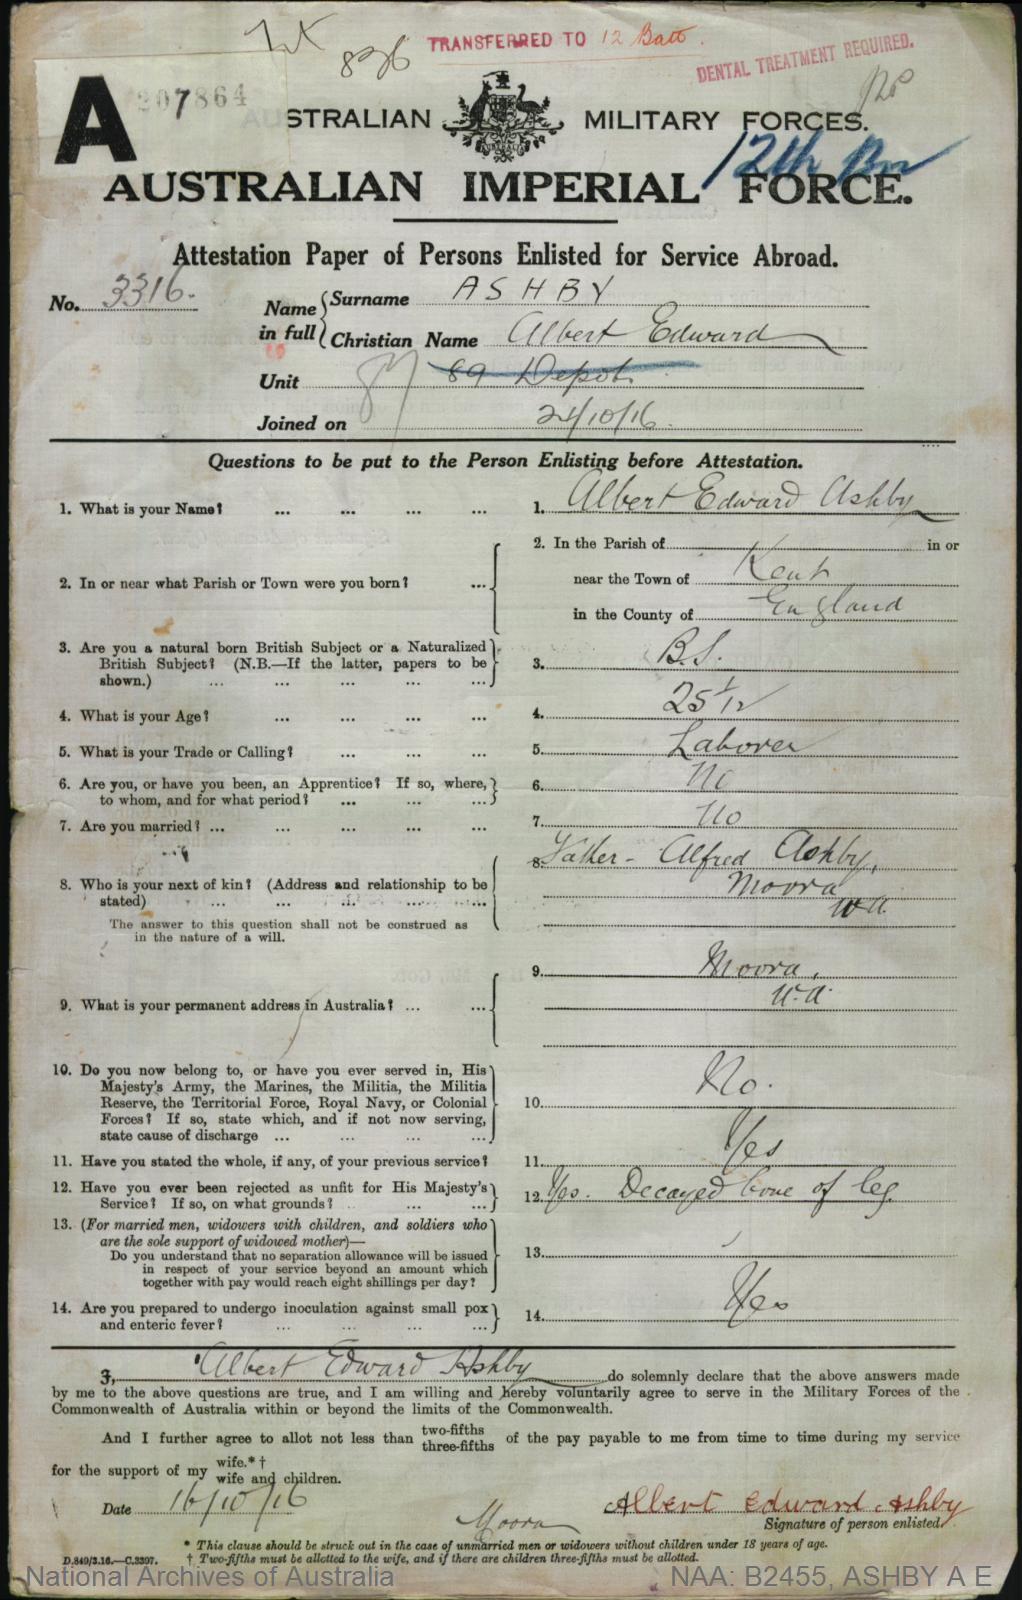 836
TRANSFERRED TO 12 Batt.
DENTAL TREATMENT REQUIRED.
A
207864
AUSTRALIAN MILITARY FORCES.
12th Bn
AUSTRALIAN IMPERIAL FORCE.
Attestation Paper of Persons Enlisted for Service Abroad.
No. 3316.
Name in full { Surname ASHBY
Christian Name Albert Edward
Unit 89 Depot.
Joined on 24/10/16.
Questions to be put to the Person Enlisting before Attestation.
1. What is your Name? ... ... ... ... 1. Albert Edward Ashby
2. In or near what Parish or Town were you born? ... 2. In the Parish of in or
near the Town of Kent
in the County of England
3. Are you a natural born British Subject or a Naturalized
British Subject? (N.B.—If the latter, papers to be
shown.) ... ... ... ... ... 3. B.S.
4. What is your Age? ... ... ... ... 4. 25 1/12
5. What is your Trade or Calling? ... ... ... 5. Laborer
6. Are you, or have you been, an Apprentice? If so, where,
to whom, and for what period? ... ... ... 6. No
7. Are you married? ... ... ... ... ... 7. No
8. Father - Alfred Ashby,
8. Who is your next of kin? (Address and relationship to be
stated) ... ... ... ... ... Moora
W.A.
The answer to this question shall not be construed as
in the nature of a will.
9. What is your permanent address in Australia? ... ... 9. Moora,
W.A.
10. Do you now belong to, or have you ever served in, His
Majesty's Army, the Marines, the Militia, the Militia
Reserve, the Territorial Force, Royal Navy, or Colonial
Forces? If so, state which, and if not now serving,
state cause of discharge ... ... ... ... 10. No.
11. Have you stated the whole, if any, of your previous service? 11. Yes
12. Have you ever been rejected as unfit for His Majesty's
Service? If so, on what grounds? ... ... 12. Yes. Decayed bone of leg
13. (For married men, widowers with children, and soldiers who
are the sole support of widowed mother)—
Do you understand that no separation allowance will be issued
in respect of your service beyond an amount which
together with pay would reach eight shillings per day? 13.
14. Are you prepared to undergo inoculation against small pox
and enteric fever? ... ... ... ... 14. Yes
I, Albert Edward Ashby do solemnly declare that the above answers made
by me to the above questions are true, and I am willing and hereby voluntarily agree to serve in the Military Forces of the
Commonwealth of Australia within or beyond the limits of the Commonwealth.
And I further agree to allot not less than two-fifths three-fifths of the pay payable to me from time to time during my service
for the support of my wife.*† wife and children.
Date 16/10/16
Moora
Albert Edward Ashby
Signature of person enlisted.
* This clause should be struck out in the case of unmarried men or widowers without children under 18 years of age.
D.849/3.16.—C.3397. † Two-fifths must be allotted to the wife, and if there are children three-fifths must be allotted.
National Archives of Australia NAA: B2455, ASHBY A E